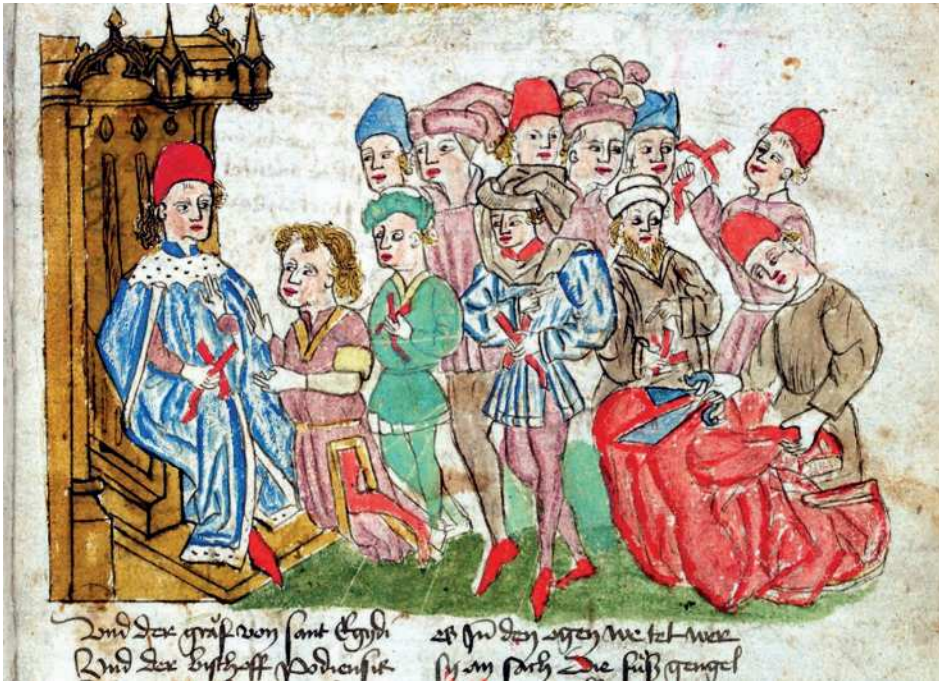 Vnd der gräf von sant Egydi
Vnd der bischoff podiensis
es Jn den ogen we tet wer
sy an sach Die füß gengel